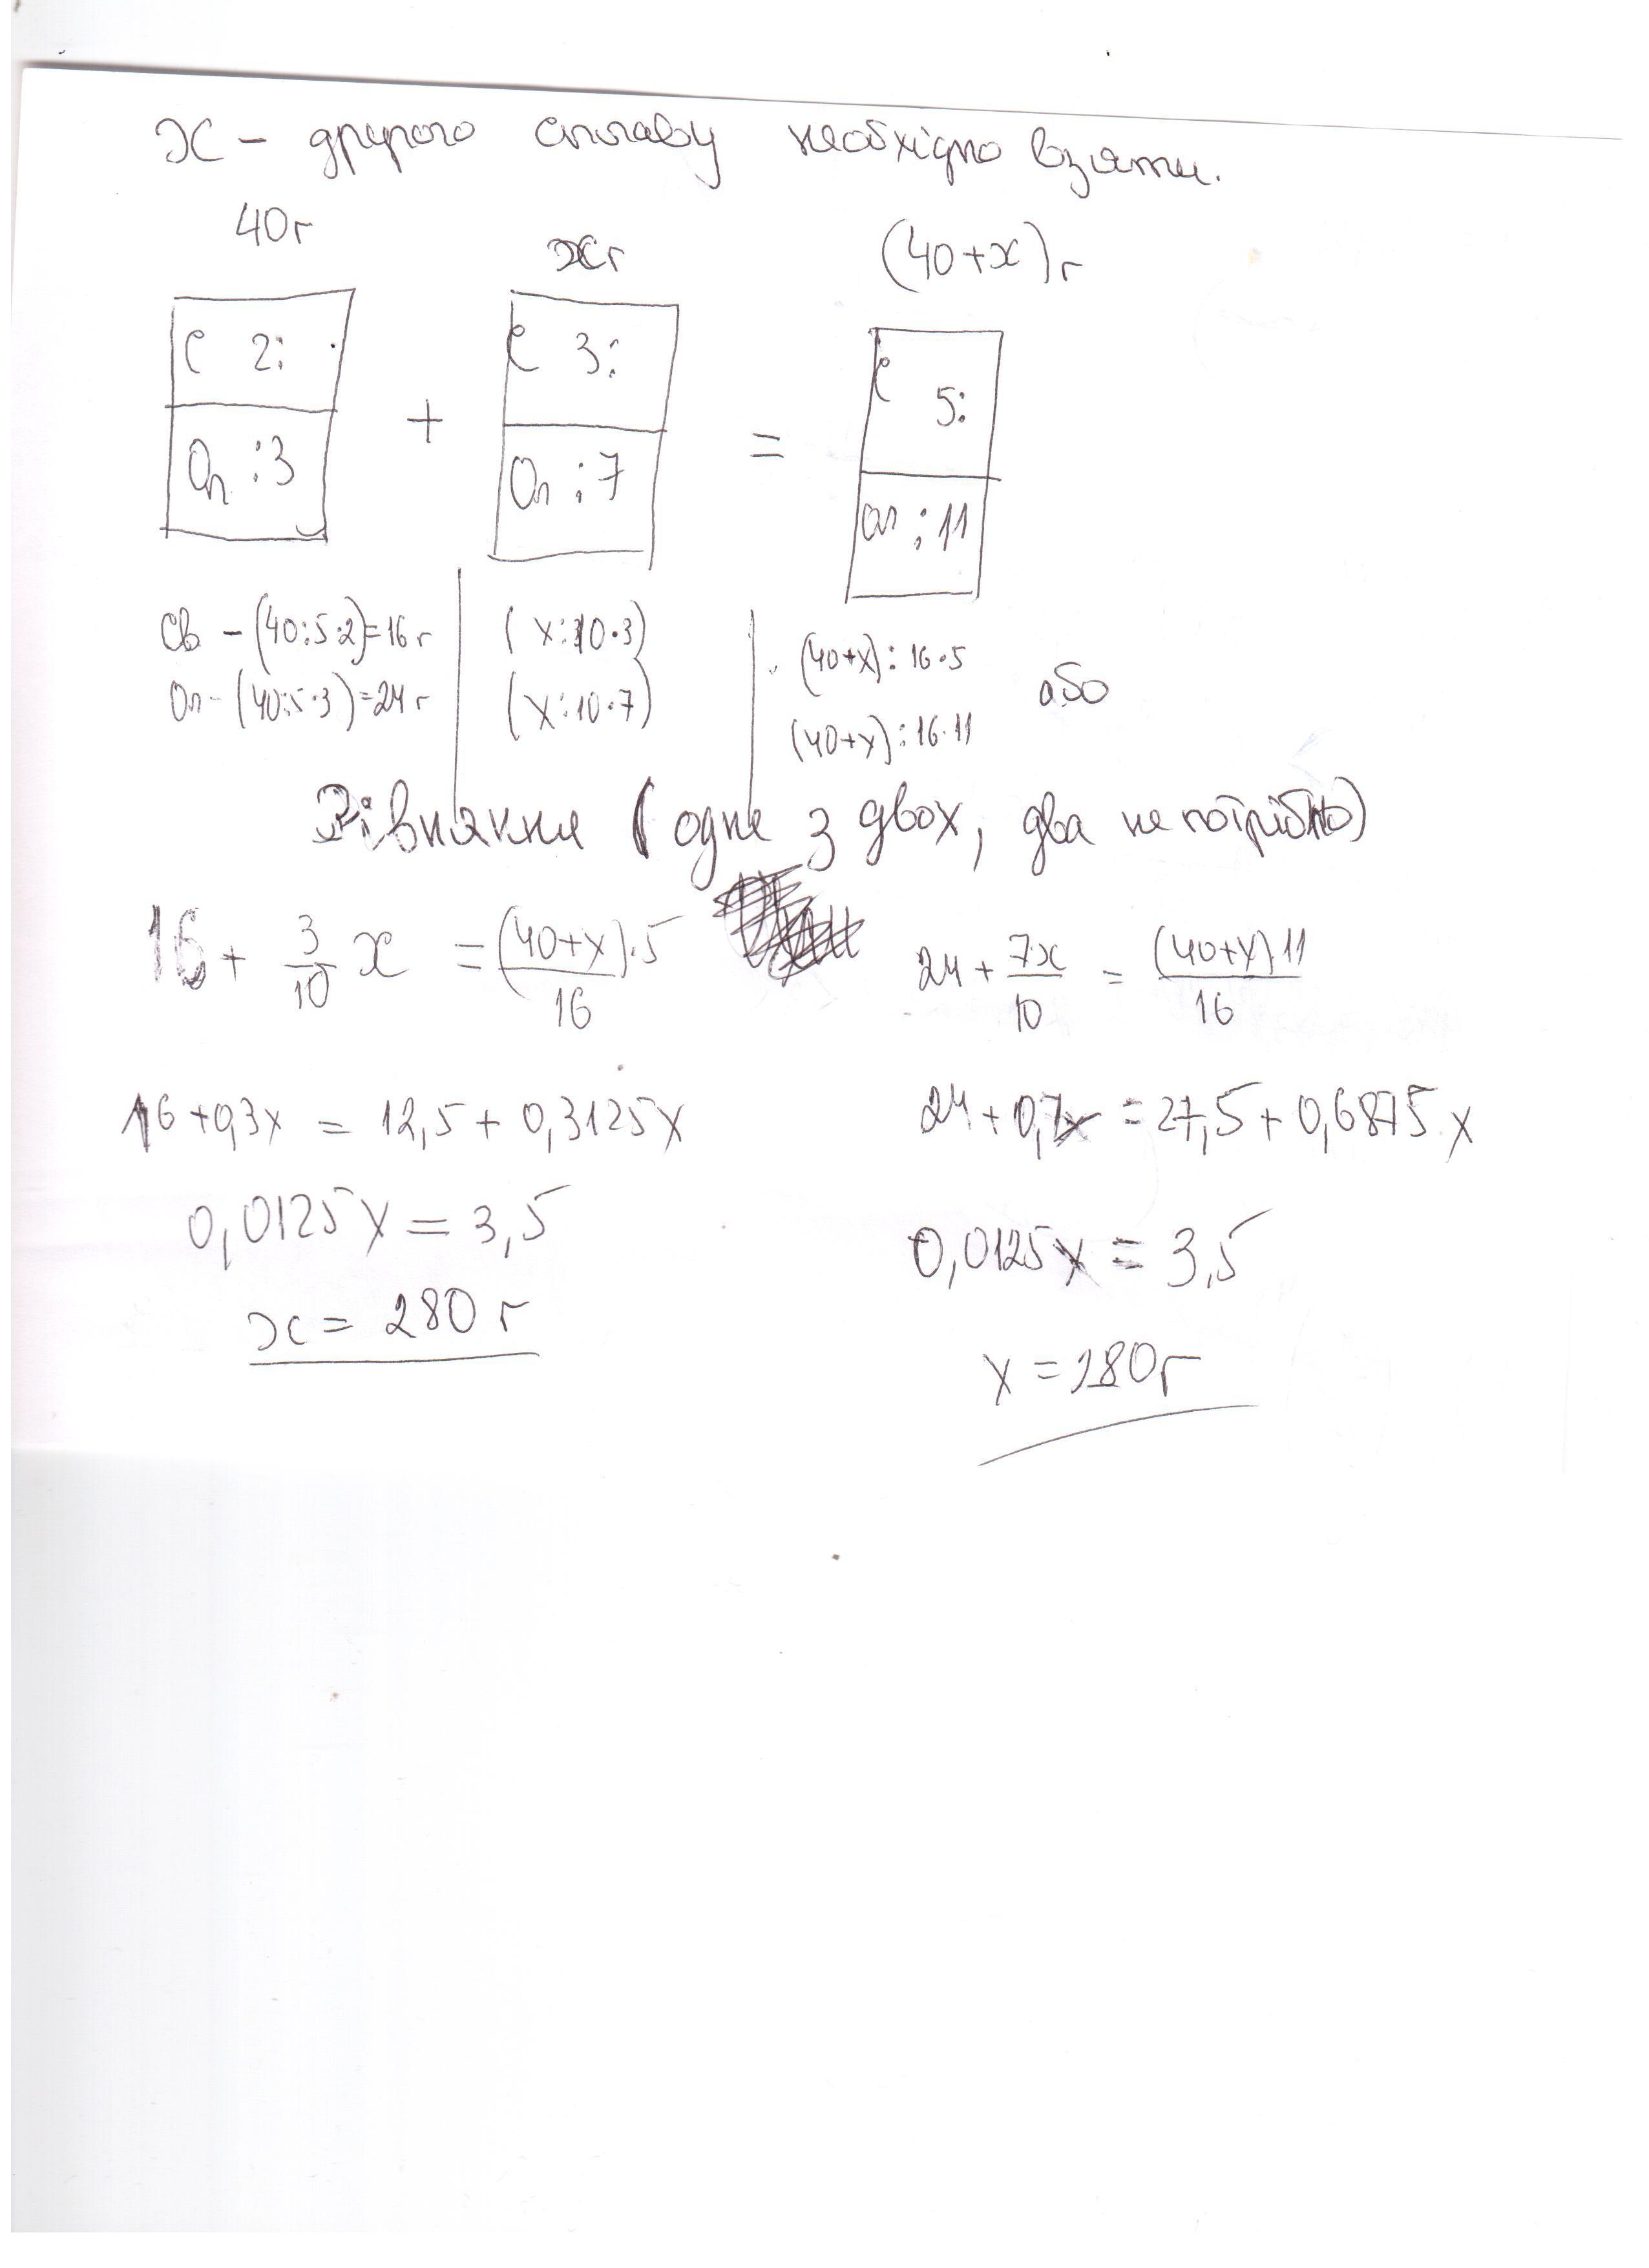 x - другого сплаву необхідно взяти.
40г xг (40+x)г
С 2: С 3: С 5:
Ол :3 + Ол :7 = Ол :11
Св - (40:5·2)=16г (x:10·3) (40+x):16·5
Ол - (40:5·3)=24г (x:10·7) (40+x):16·11 або
Рівняння (одне з двох, два не потрібно)
16 + 3/10 x = (40+x)·5/16 24 + 7x/10 = (40+x)11/16
16+0,3x = 12,5+0,3125x 24+0,7x = 27,5+0,6875x
0,0125x = 3,5 0,0125x = 3,5
x = 280 г x = 280г